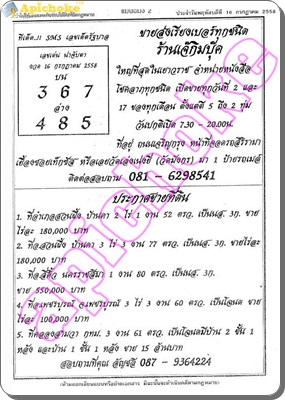 Apichoke
แบบของ 2
ประจำวันพฤหัสบดีที่ 16 กรกฎาคม 2558
ทีเด็ด.11 SMS เลขเด็ดรัฐบาล
เลขเด่น ฟาลุ้นตา
งวด 16 กรกฎาคม 2558
บน
3 6 7
ล่าง
4 8 5
ขายส่งเรียงเบอร์ทุกชนิด
ร้านเจ๊กิมปุ๊ค
ใหญ่ที่สุดในเยาวราช จำหน่ายหนังสือ
โชคลาภทุกชนิด เปิดขายทุกวันที่ 2 และ
17 ของทุกเดือน ตั้งแต่ตี 5 ถึง 2 ทุ่ม
วันปกติเปิด 7.30 - 20.00น.
ที่อยู่ ถนนเจริญกรุง หน้าที่จอดรถสิริรามา
เยื้องซอยเท็กซัส หรือเลยวัดเล่งเน่ยยี่ (วัดมังกร) มา 1 ป้ายรถเมล์
ติดต่อสอบถาม 081 - 6298541
ประกาศขายที่ดิน
1. ที่อำเภอสวนผึ้ง บ้านคา 2 ไร่ 1 งาน 52 ตรว. เป็นนส. 3ก. ขาย
ไร่ละ 180,000 บาท
2. ที่อำเภอสวนผึ้ง บ้านคา 3 ไร่ 3 งาน 77 ตรว. เป็นนส. 3ก. ขายไร่ละ
180,000 บาท
3. ที่อ.สีคิ้ว นครราชสีมา 1 งาน 80 ตรว. เป็นนส. 3ก.
ขาย 550,000 บาท
4. ที่อ.เพชรบูรณ์ จ.เพชรบูรณ์ 3 ไร่ 3 งาน 60 ตรว. เป็นโฉนด ขาย
ไร่ละ 100,000 บาท
5. ที่คลองสามวา กทม. 3 งาน 61 ตรว. เป็นโฉนดมีบ้าน 2 ชั้น 1
หลัง และบ้าน 1 ชั้น 1 หลัง ขาย 15 ล้านบาท
สอบถามที่คุณ อัญชลี 087 - 9364224
apichoke